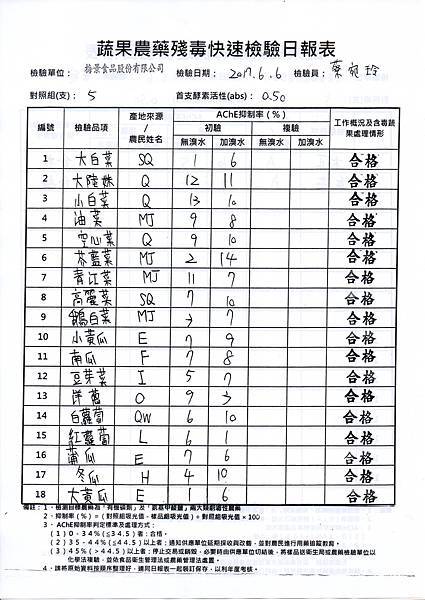 蔬果農藥殘毒快速檢驗日報表
檢驗單位： 揚景食品股份有限公司 檢驗日期： 2017.6.6 檢驗員： 葉宛玲
對照組(支)： 5 首支酵素活性(abs)： 0.50
編號 檢驗品項 產地來源/農民姓名 AChE抑制率(%) 工作概況及含毒蔬果處理情形
初驗 複驗
無溴水 加溴水 無溴水 加溴水
1 大白菜 SQ 1 6 合格
2 大陸妹 Q 12 11 合格
3 小白菜 Q 13 10 合格
4 油菜 MJ 9 8 合格
5 空心菜 Q 9 10 合格
6 芥藍菜 MJ 2 14 合格
7 青江菜 MJ 11 7 合格
8 高麗菜 SQ 7 10 合格
9 鵝白菜 MJ 3 7 合格
10 小黃瓜 E 7 9 合格
11 南瓜 F 7 8 合格
12 豆芽菜 I 5 7 合格
13 洋蔥 O 9 3 合格
14 白蘿蔔 QW 6 10 合格
15 紅蘿蔔 L 6 1 合格
16 蒲瓜 E 7 6 合格
17 冬瓜 H 4 10 合格
18 大黃瓜 E 1 6 合格
備註：1．檢測目標農藥為「有機磷劑」及「氨基甲酸鹽」兩大類劇毒性農藥
2．抑制率(%)=(對照組吸光值－樣品組吸光值)÷對照組吸光值×100
3．AChE抑制率判定標準及處理方式：
(1)0-34%(≦34.5)者：合格。
(2)35-44%(≦44.5)以上者：通知供應單位延期採收與改善，並對農民進行用藥追蹤教育。
(3)45%(＞44.5)以上者：停止交易或銷毀，必要時由供應單位切結後，將樣品送衛生局或農藥檢驗單位以
化學法複驗，並依食品衛生管理法或農藥管理法處置。
4．請將原始資料按順序整理好，連同日報表一起裝訂保存，以利年度考核。